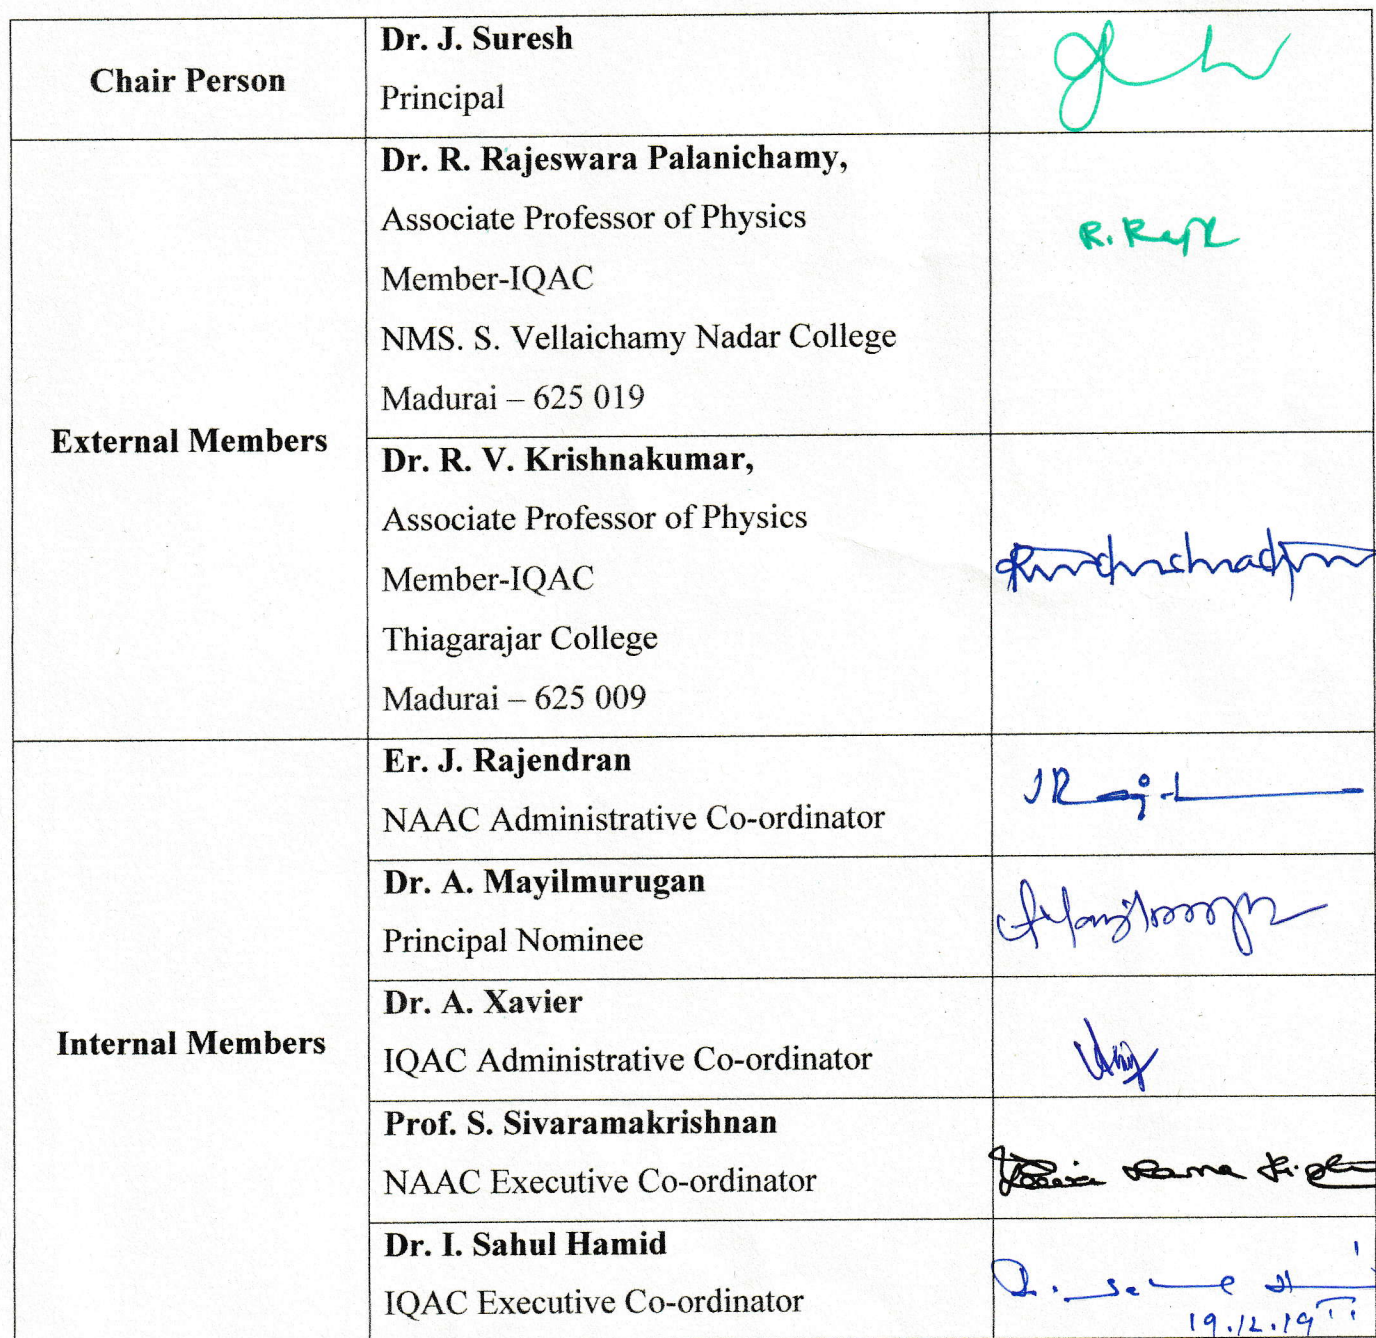 Chair Person
Dr. J. Suresh
Principal
External Members
Dr. R. Rajeswara Palanichamy,
Associate Professor of Physics
Member-IQAC
NMS. S. Vellaichamy Nadar College
Madurai – 625 019
R. Raj
Dr. R. V. Krishnakumar,
Associate Professor of Physics
Member-IQAC
Thiagarajar College
Madurai – 625 009
Internal Members
Er. J. Rajendran
NAAC Administrative Co-ordinator
Dr. A. Mayilmurugan
Principal Nominee
Dr. A. Xavier
IQAC Administrative Co-ordinator
Prof. S. Sivaramakrishnan
NAAC Executive Co-ordinator
Dr. I. Sahul Hamid
IQAC Executive Co-ordinator
19.12.19